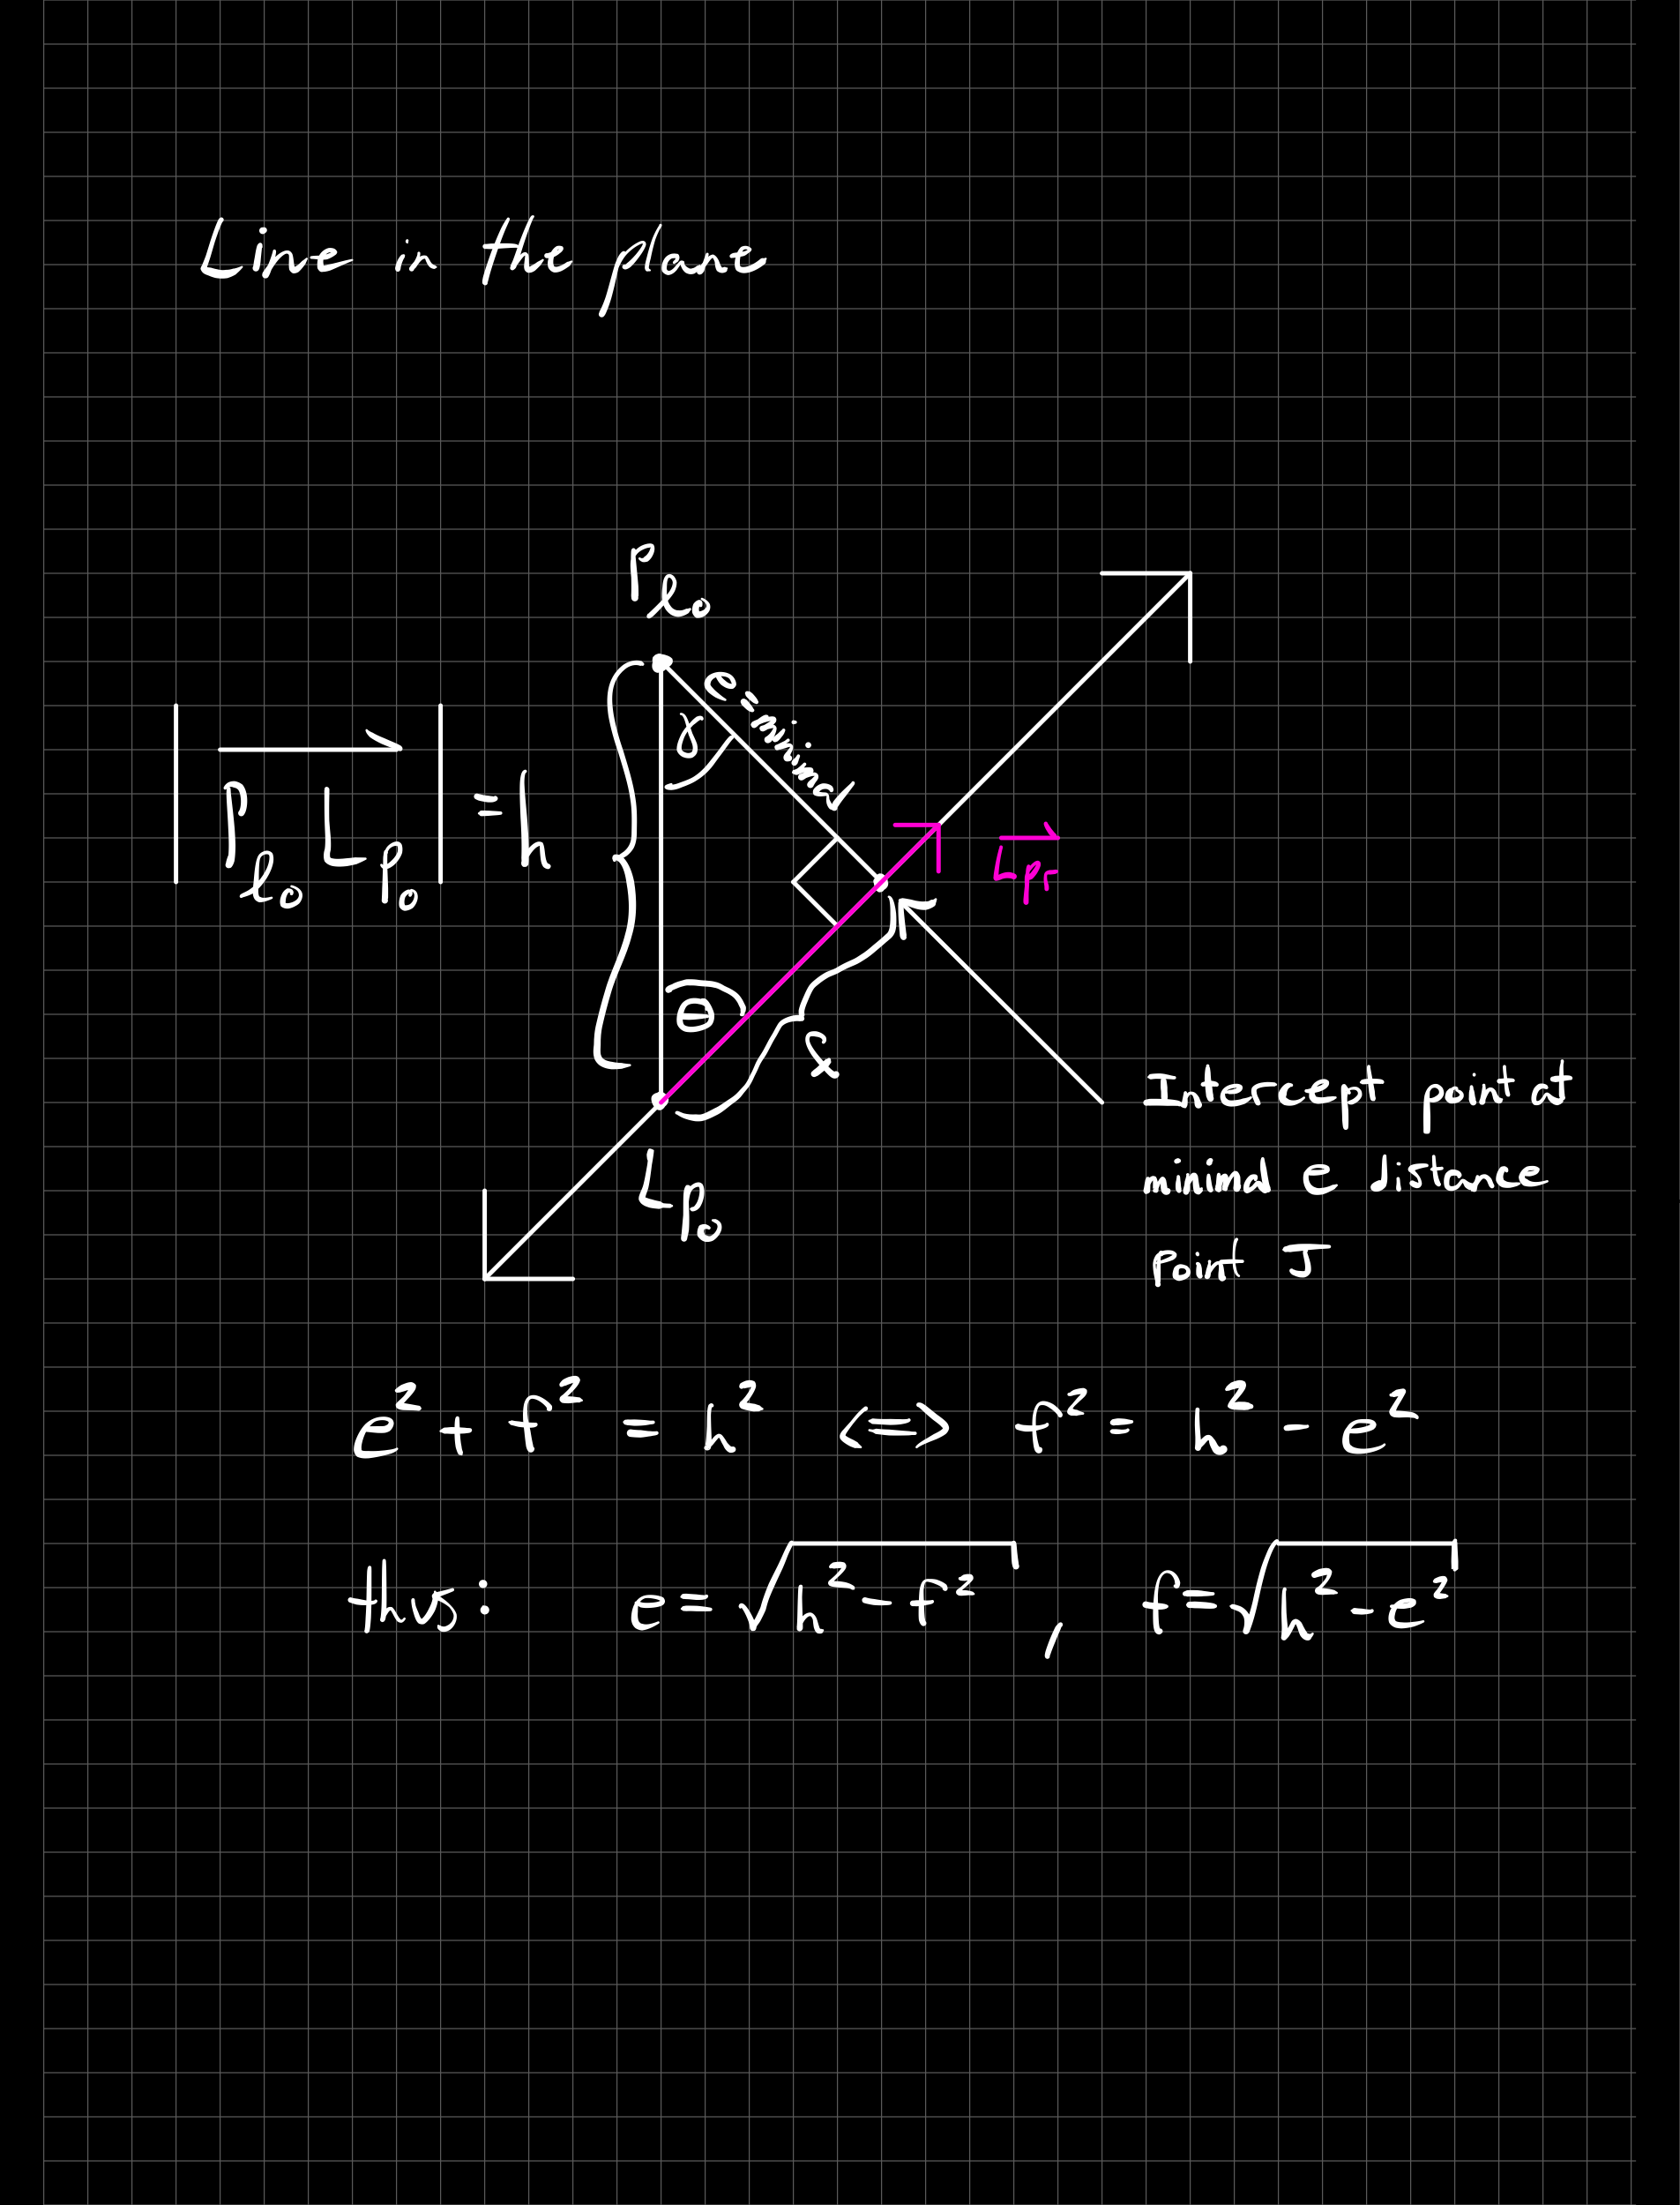 Line in the plane
P_l₀
e=minimal
γ
|P_l₀ L_p₀| = h
L_pr
θ
f
Intercept point at
minimal e distance
point J
L_p₀
e² + f² = h² <=> f² = h² - e²
thus: e = √(h² - f²) , f = √(h² - e²)